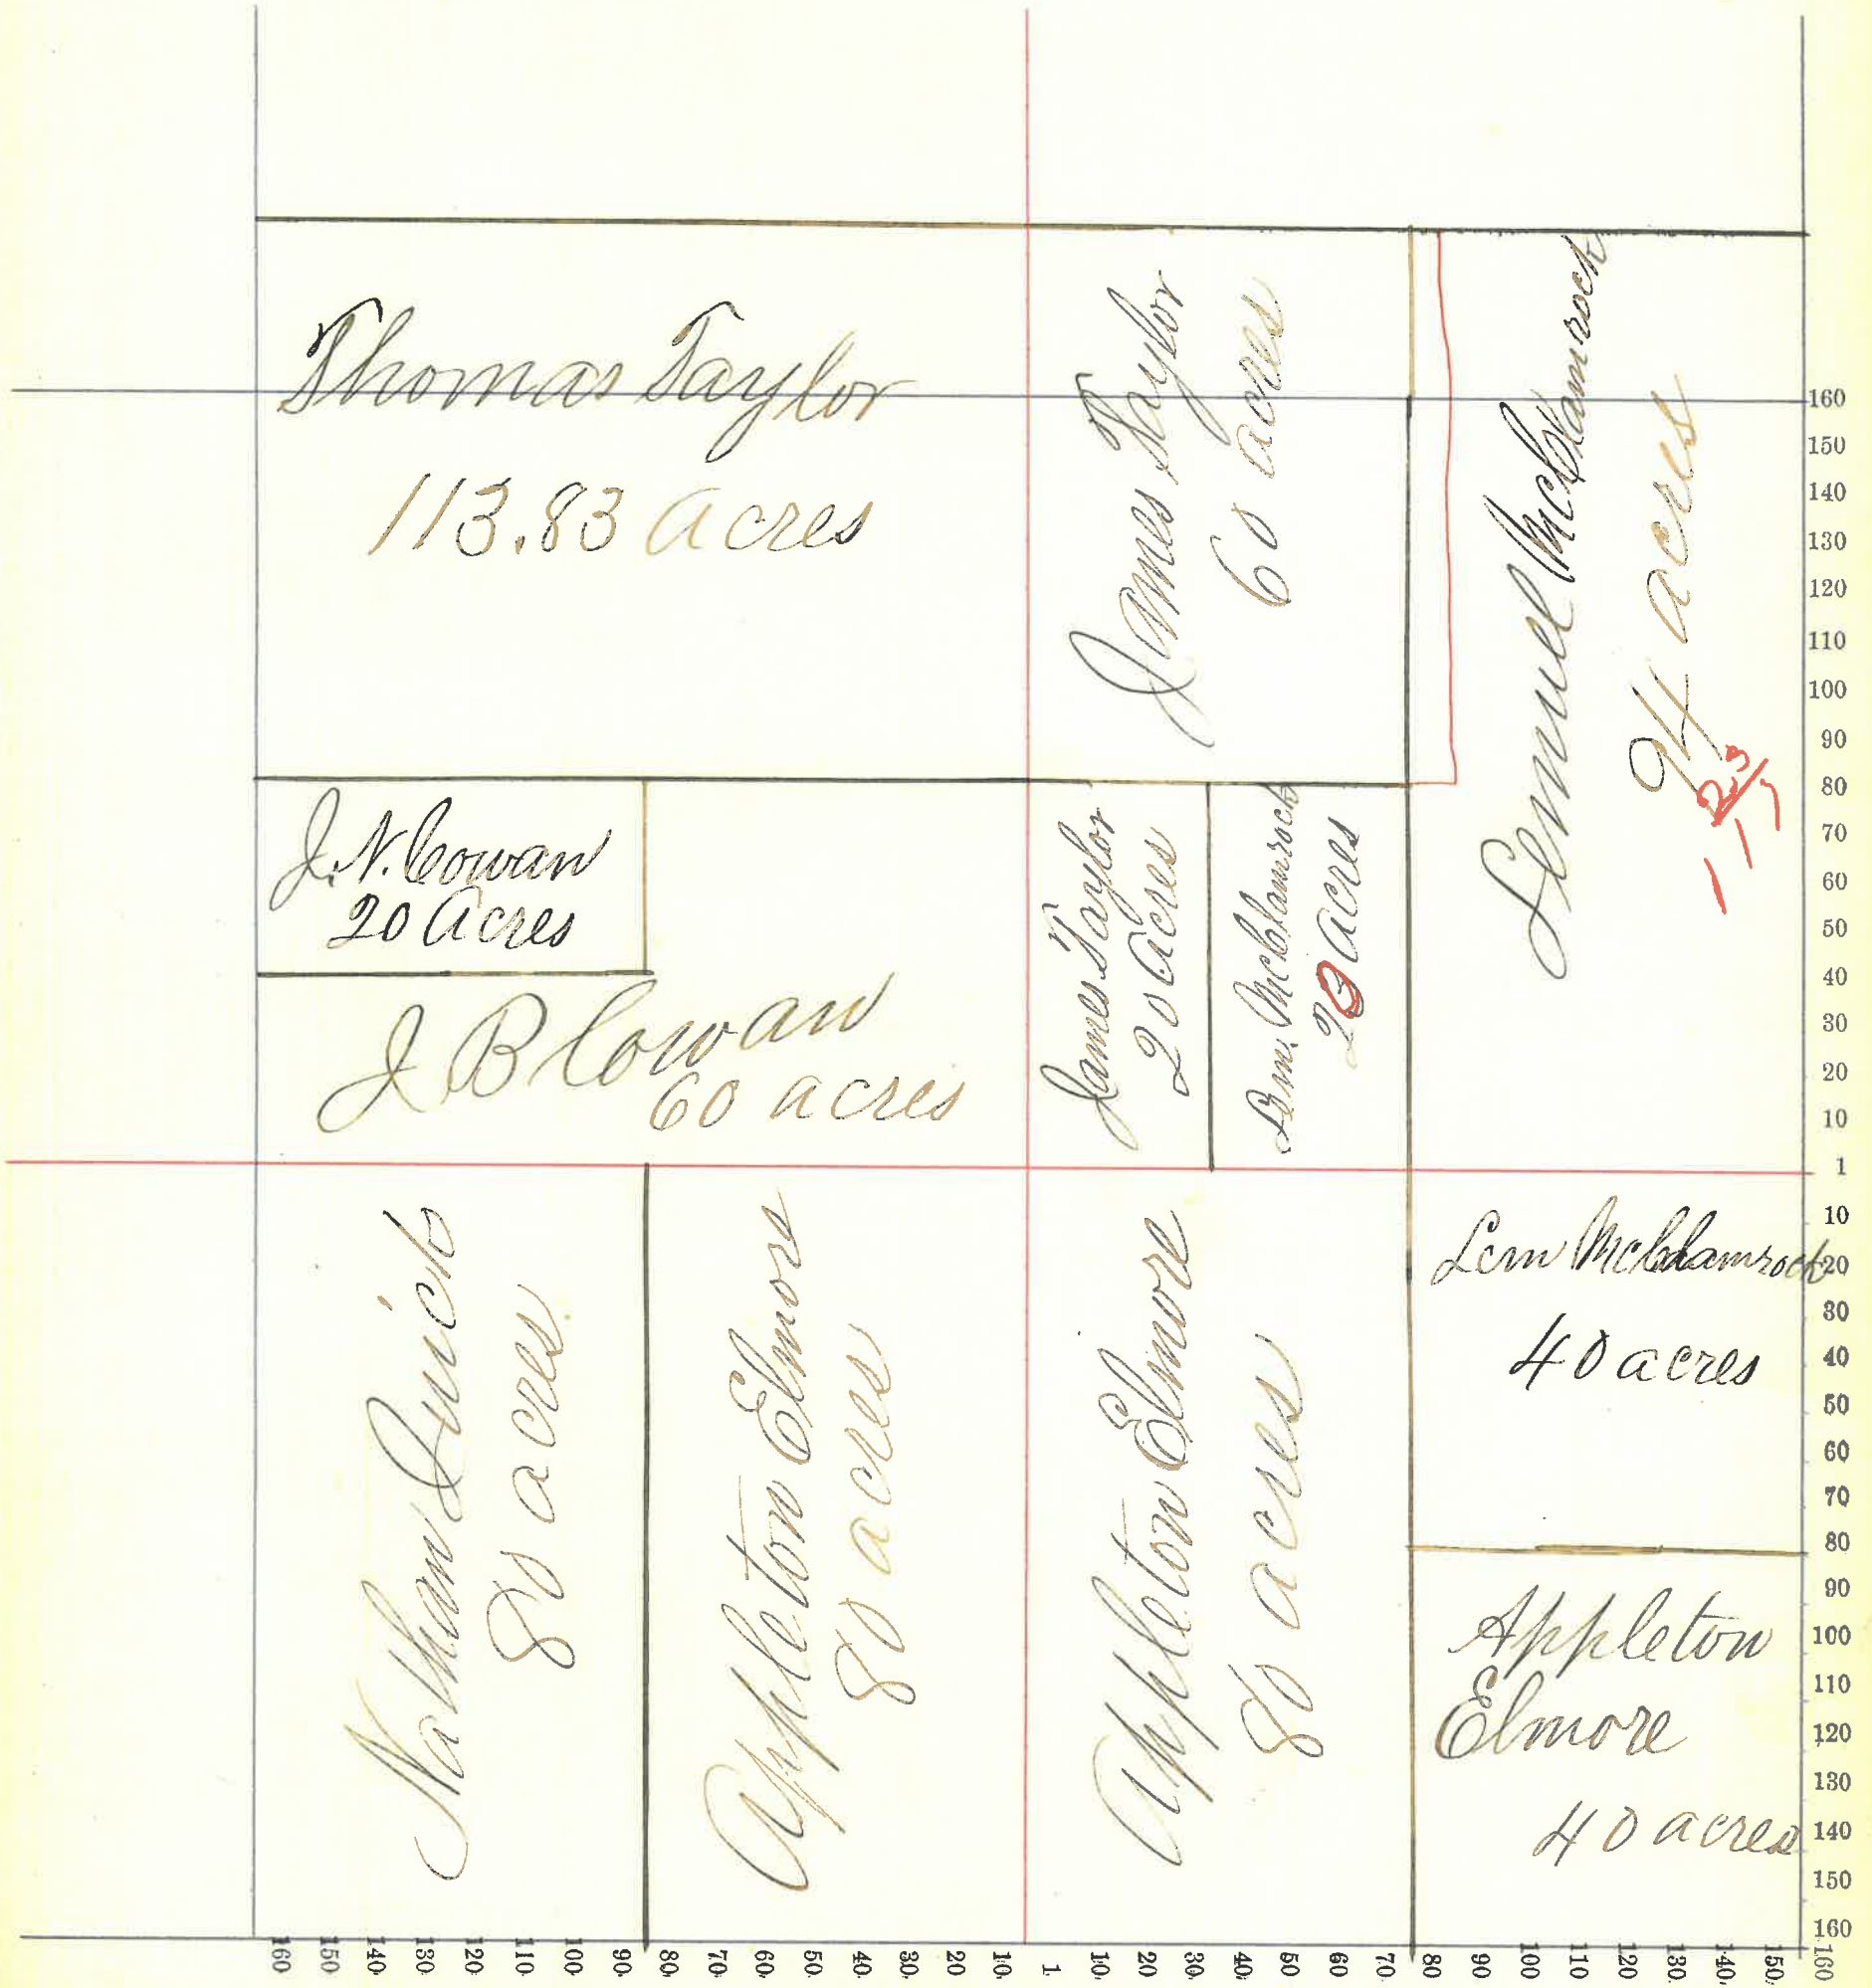 Thomas Taylor
113.83 acres
James Taylor
60 acres
Lemuel McClamrock
94 acres
23
J. N. Cowan
20 Acres
J B Cowan
60 acres
James Taylor
20 acres
Lem. McClamrock
20 acres
Nathan Quick
80 acres
Appleton Elmore
80 acres
Appleton Elmore
80 acres
Lem McClamrock
40 acres
Appleton
Elmore
40 acres
160
150
140
130
120
110
100
90
80
70
60
50
40
30
20
10
1
10
20
30
40
50
60
70
80
90
100
110
120
130
140
150
160
160 150 140 130 120 110 100 90 80 70 60 50 40 30 20 10 1 10 20 30 40 50 60 70 80 90 100 110 120 130 140 150 160